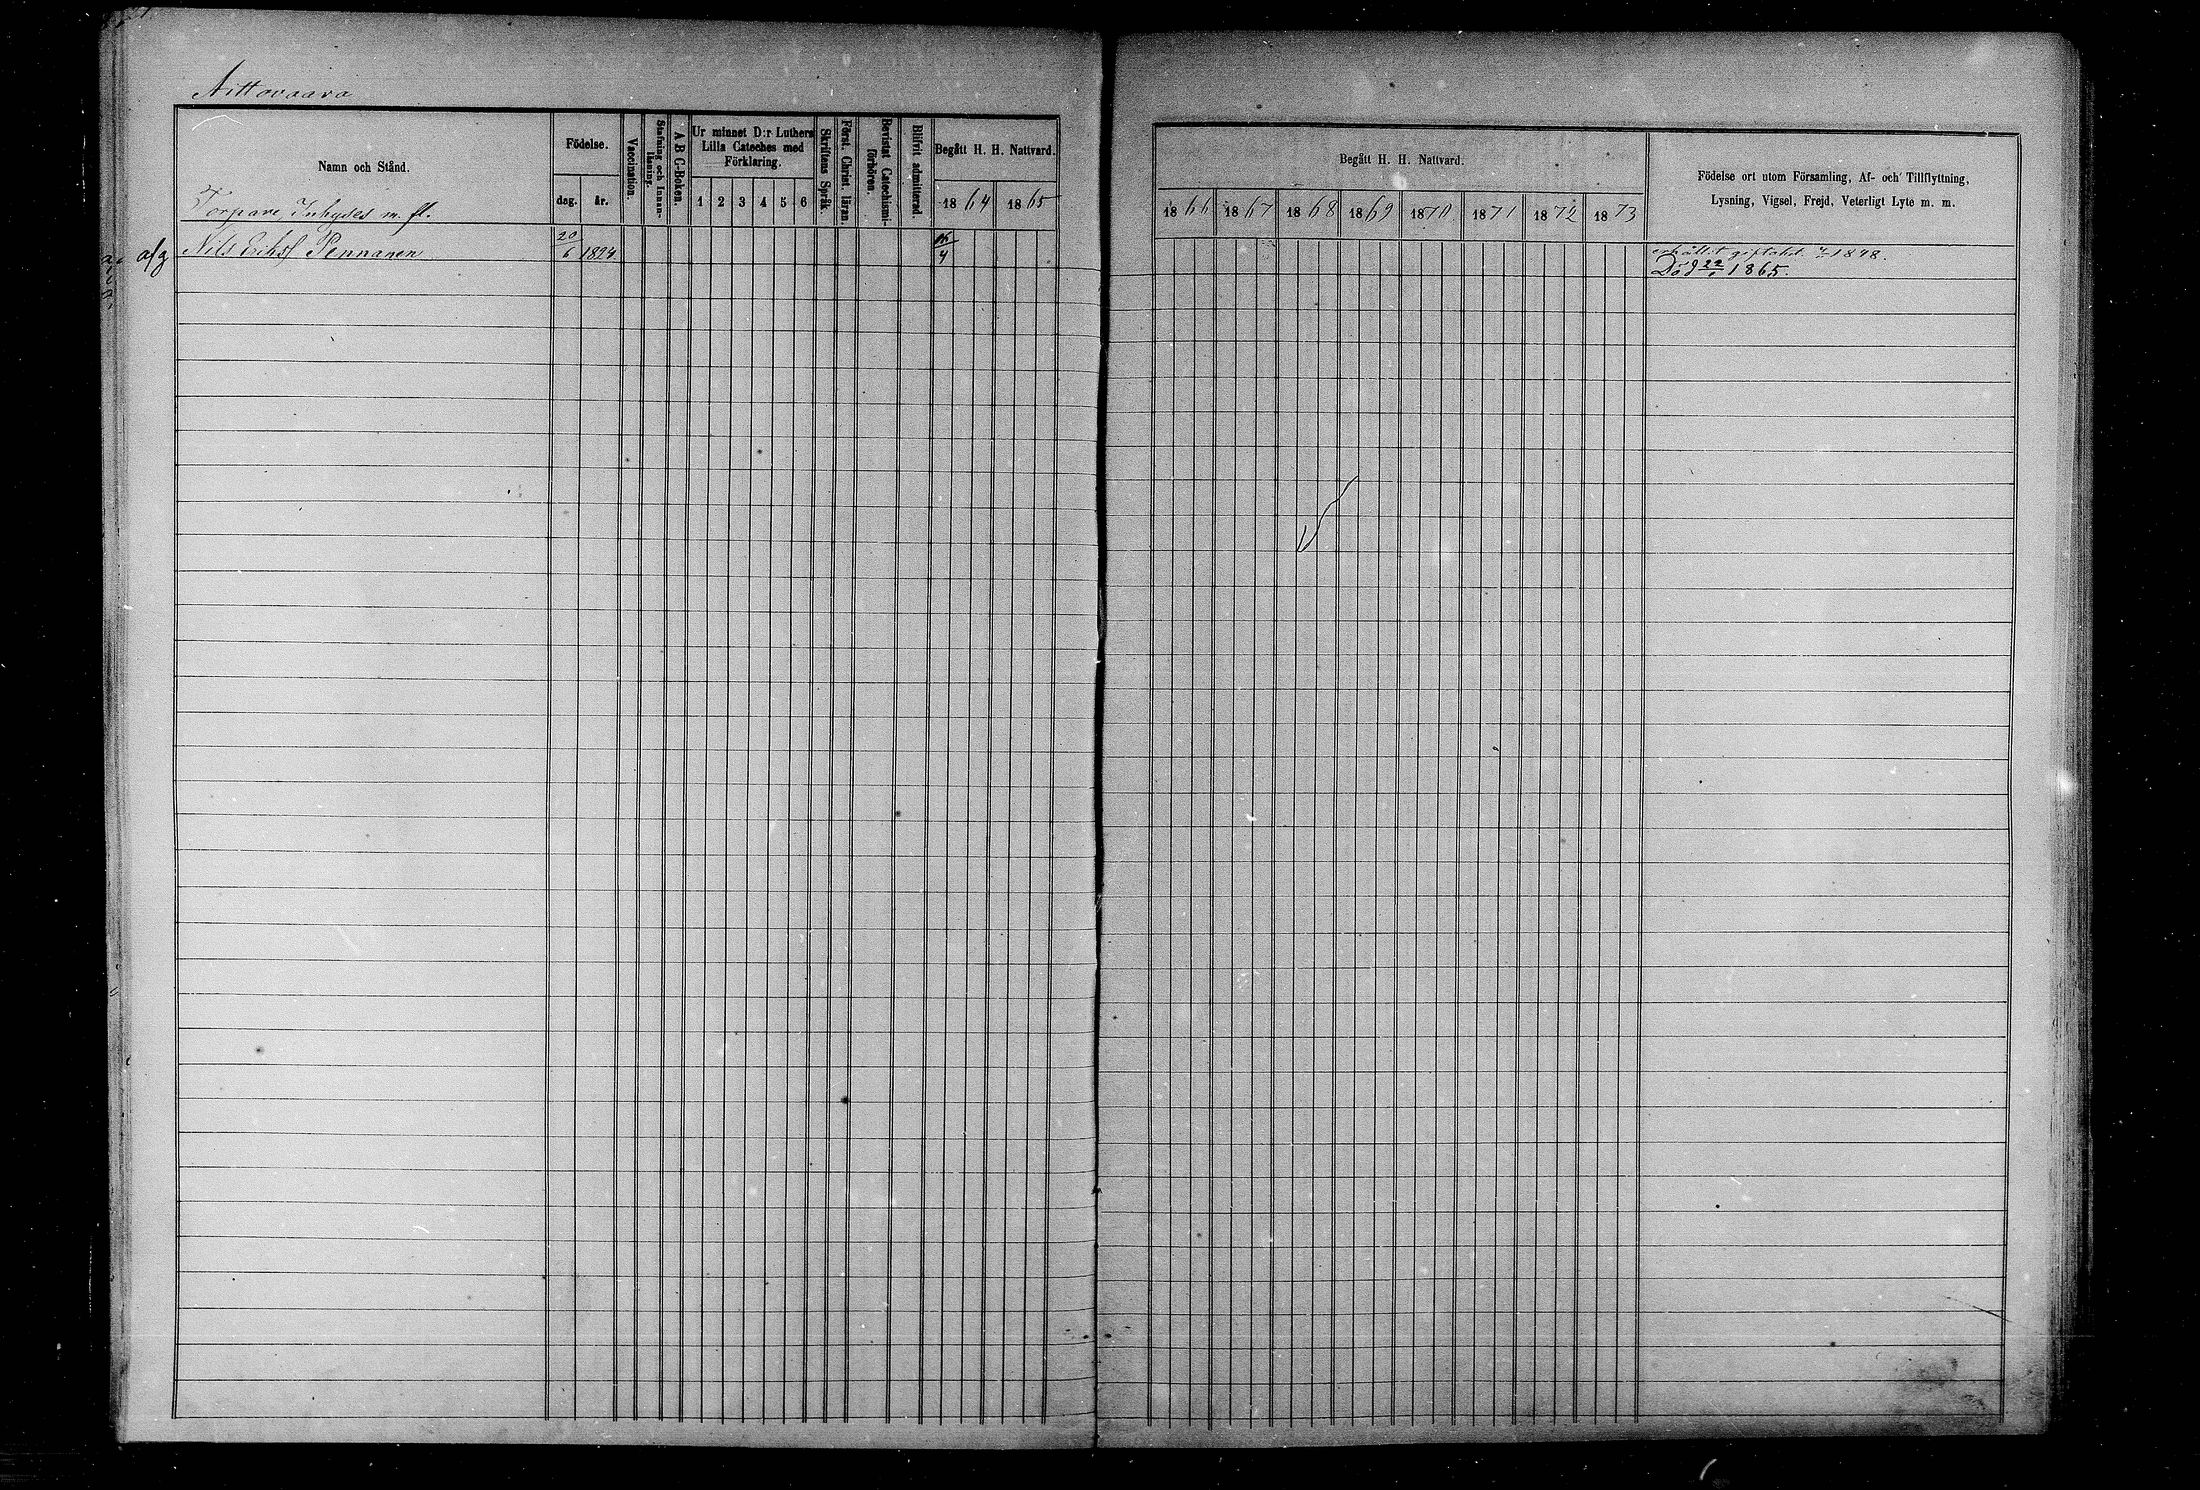 Aittovaara
Namn och Stånd.
Födelse.
dag. år.
Vaccination.
Stafning och Innanläsning.
A B C-Boken.
Ur minnet D:r Luthers
Lilla Cateches med
Förklaring.
1 2 3 4 5 6
Skriftens Språk.
Först. Christ. läran.
Bevistat Catechismi-förhören.
Blifvit admitterad.
Begått H. H. Nattvard.
1864 1865
Begått H. H. Nattvard.
1866 1867 1868 1869 1870 1871 1872 1873
Födelse ort utom Församling, Af- och Tillflyttning,
Lysning, Vigsel, Frejd, Veterligt Lyte m. m.
Torpare, Inhyses m. fl.
Nils Eriksf Pennanen 20/6 1824
1848.
Död 22/1 1865.